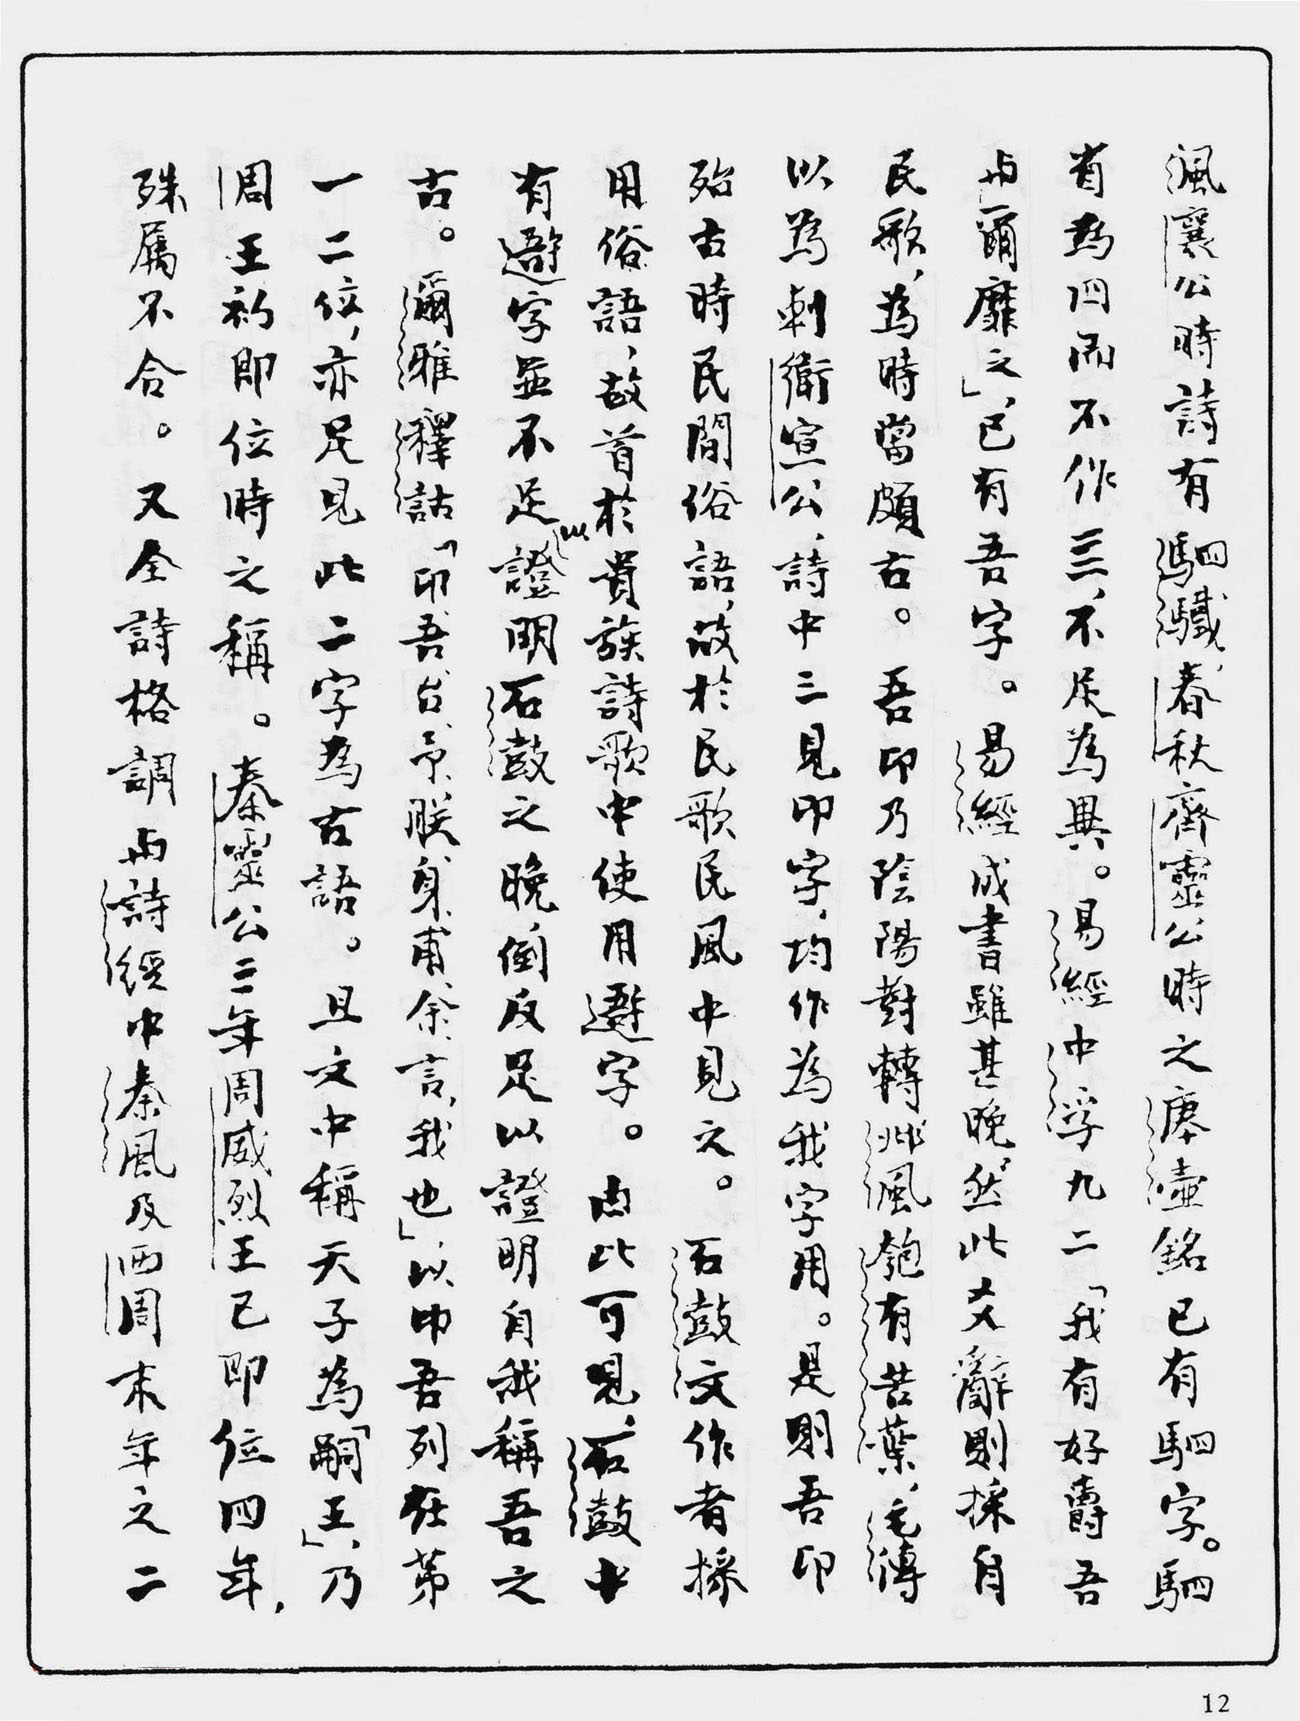 風襄公時詩有駟驖,春秋齊靈公時之庚壺銘已有駟字。駟
省為四而不作亖,不足為異。易經中孚九二「我有好爵吾
与爾靡之」,已有吾字。易經成書雖甚晚,然此爻辭則採自
民歌,為時當頗古。吾卬乃陰陽對轉,邶風匏有苦葉,毛傳
以為刺衛宣公,詩中三見卬字,均作為我字用。是則吾卬
殆古時民間俗語,故於民歌民風中見之。石鼓文作者採
用俗語,故首於貴族詩歌中使用𨖍字。由此可見,石鼓中
有𨖍字並不足以證明石鼓之晚,倒反足以證明自我稱吾之
古。爾雅釋詁「卬、吾、台、予、朕、身、甫、余、言,我也」,以卬吾列在第
一二位,亦足見此二字為古語。且文中稱天子為「嗣王」,乃
周王初即位時之稱。秦靈公三年周威烈王已即位四年,
殊屬不合。又全詩格調与詩經中秦風及西周末年之二
12